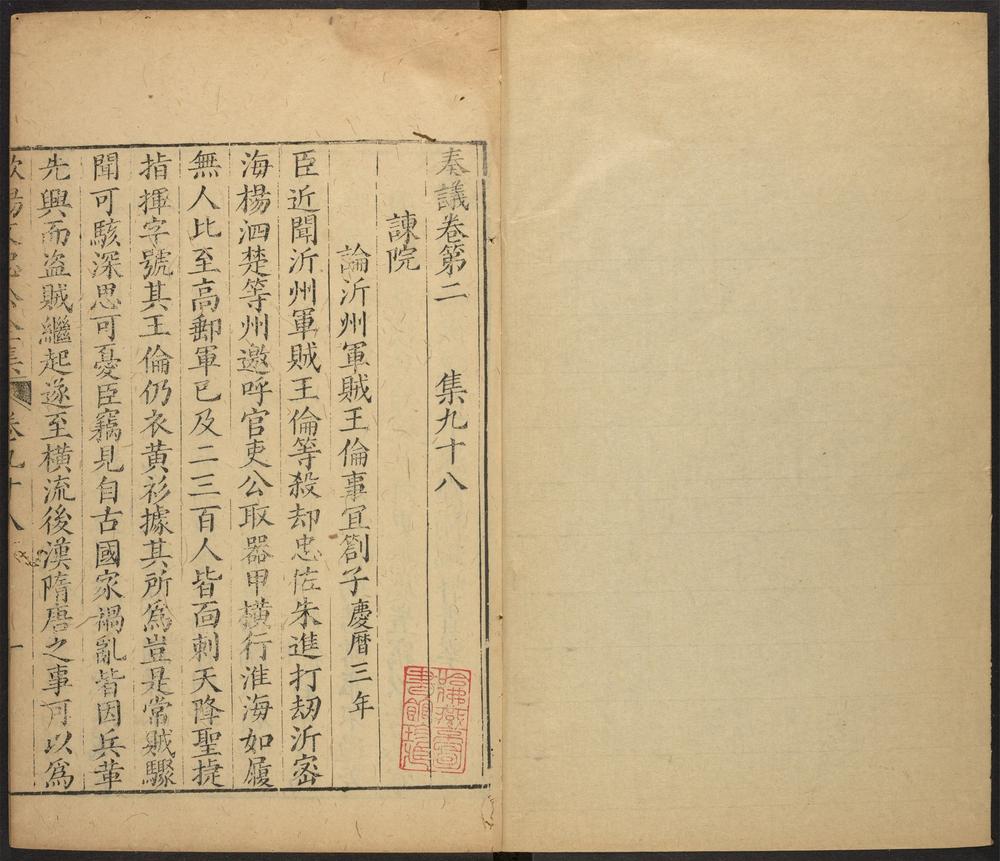 奏議卷第二 集九十八
諫院
論沂州軍賊王倫事宜劄子慶曆三年
臣近聞沂州軍賊王倫等殺却忠佐朱進打刼沂密
海楊泗楚等州邀呼官吏公取器甲橫行淮海如履
無人比至高郵軍已及二三百人皆面刺天降聖捷
指揮字號其王倫仍衣黃衫據其所爲豈是常賊驟
聞可駭深思可憂臣竊見自古國家禍亂皆因兵革
先興而盗賊繼起遂至橫流後漢隋唐之事可以爲
歐陽文忠公全集 卷九十八 一
哈佛燕京圖書館珍藏